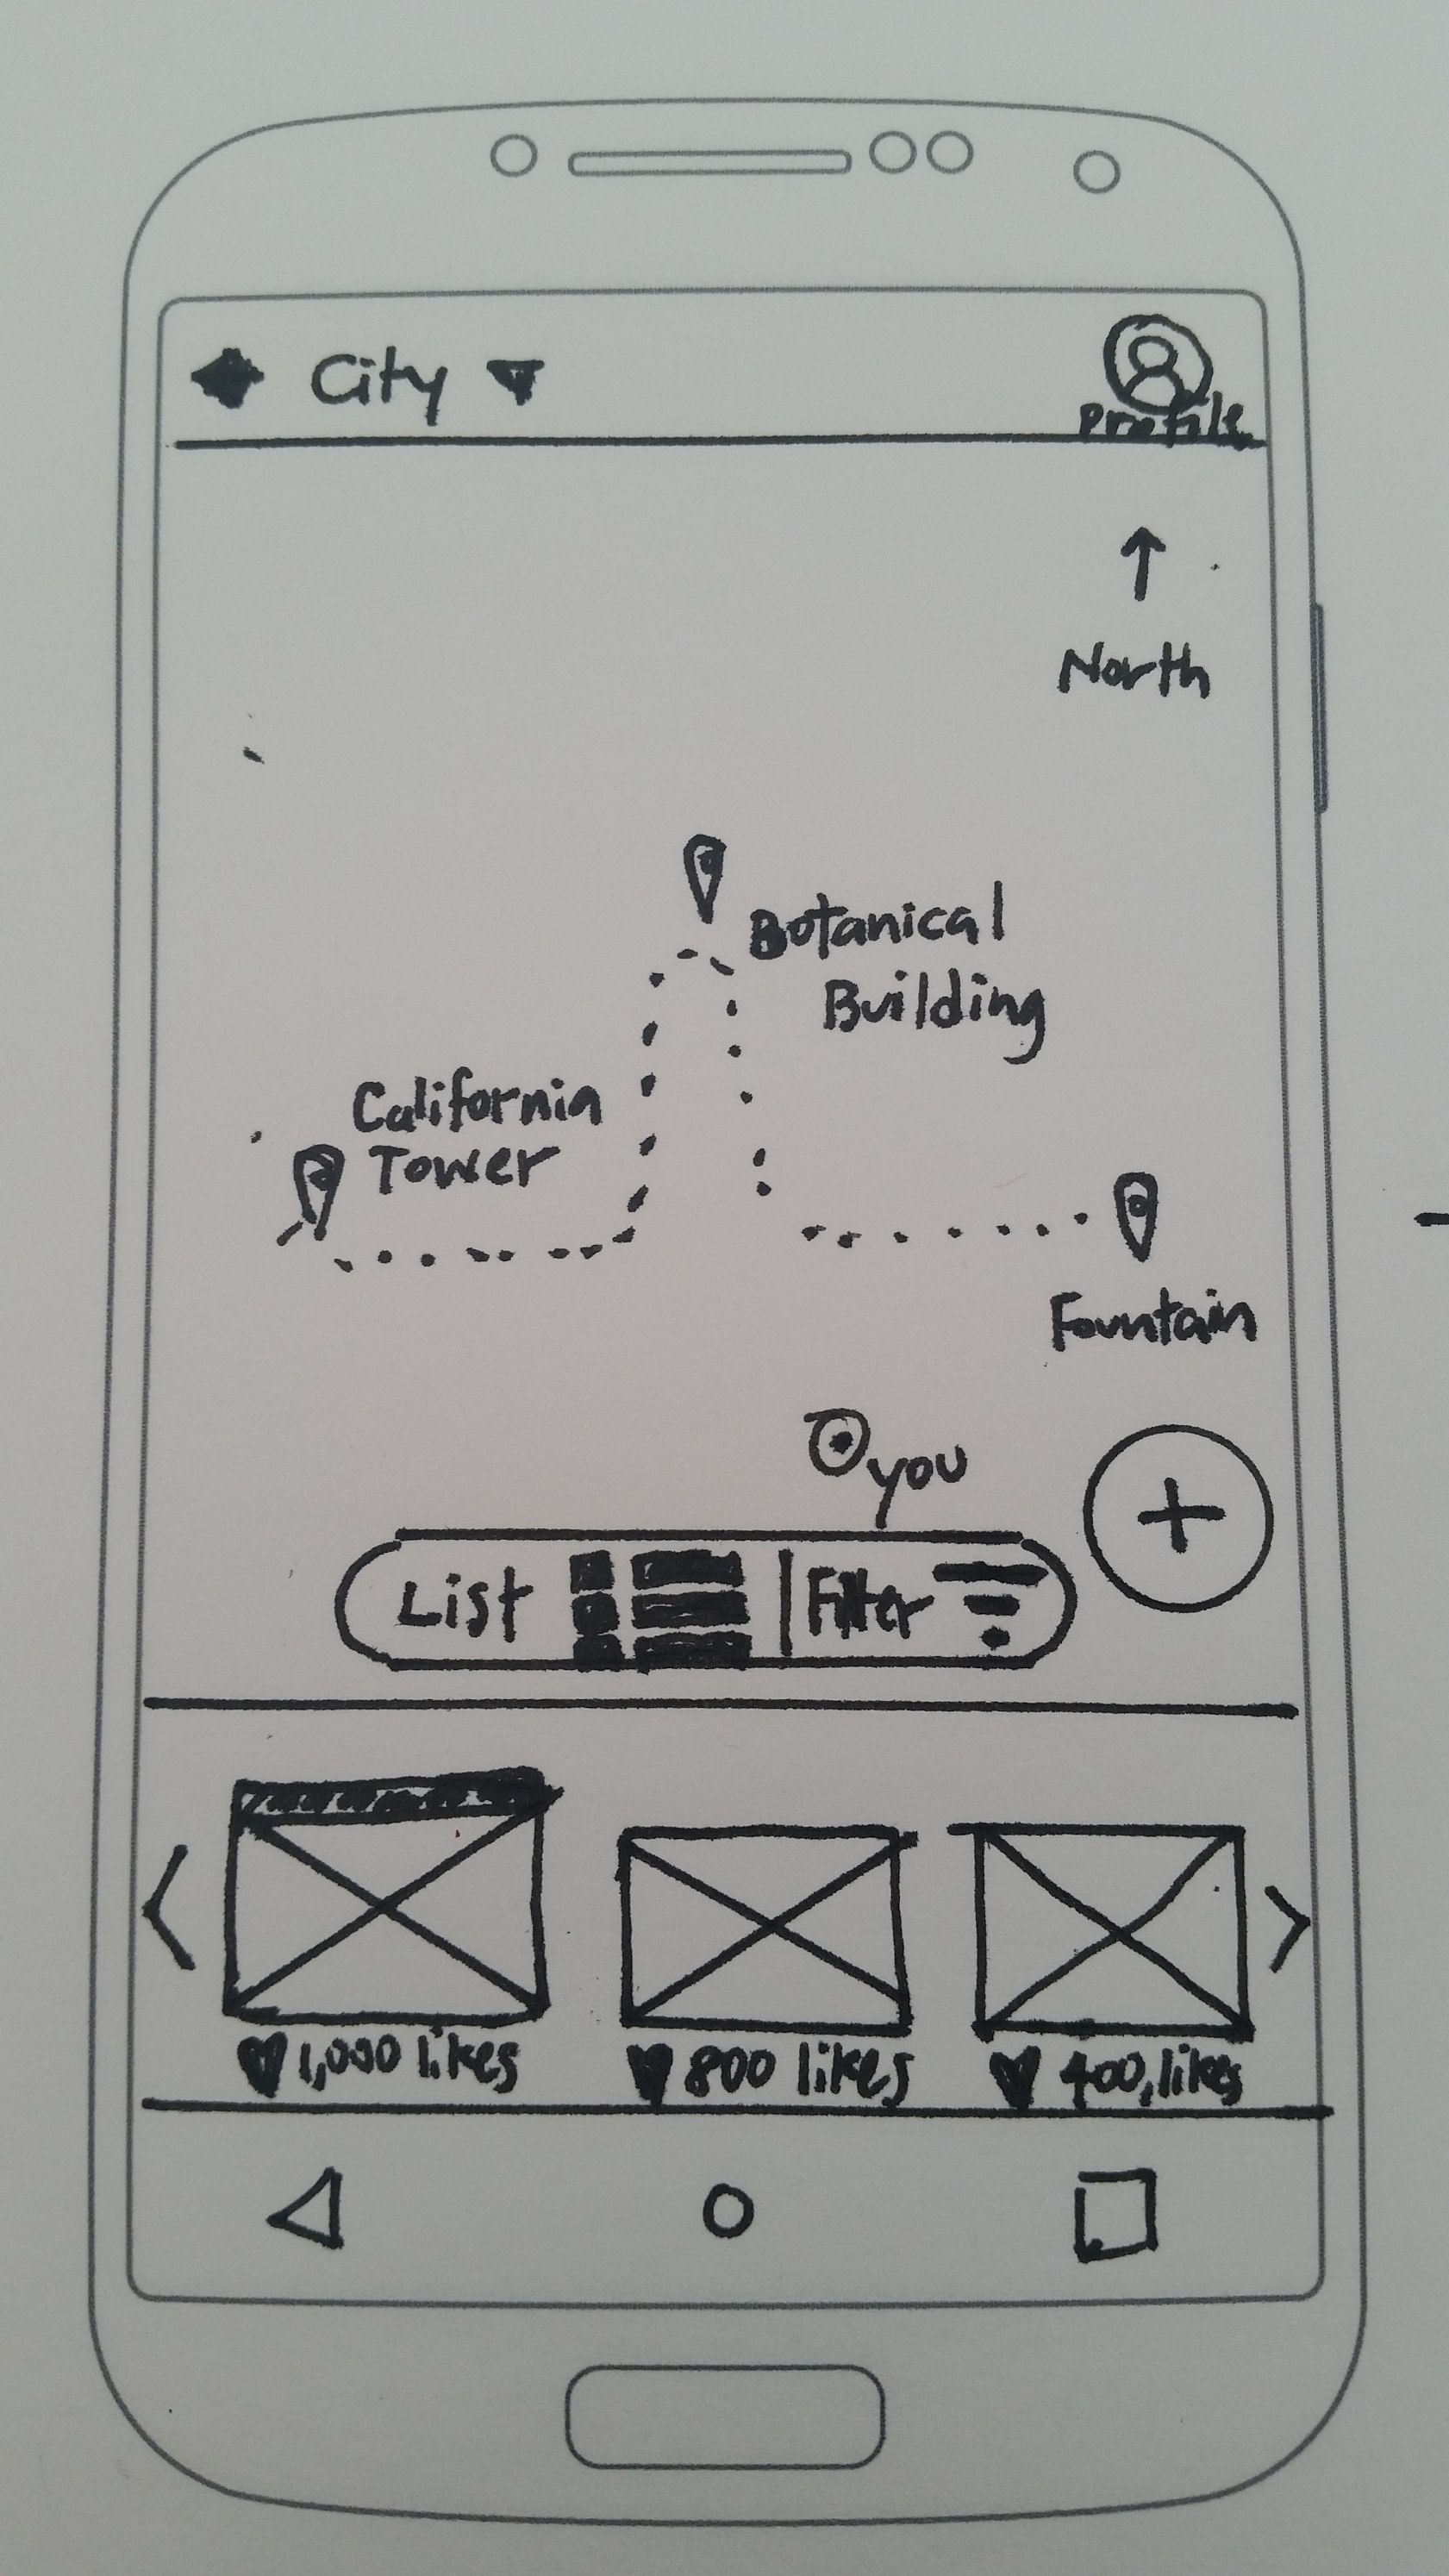 City
profile
North
Botanical
Building
California
Tower
Fountain
you
List | Filter
1,000 likes
800 likes
400,likes